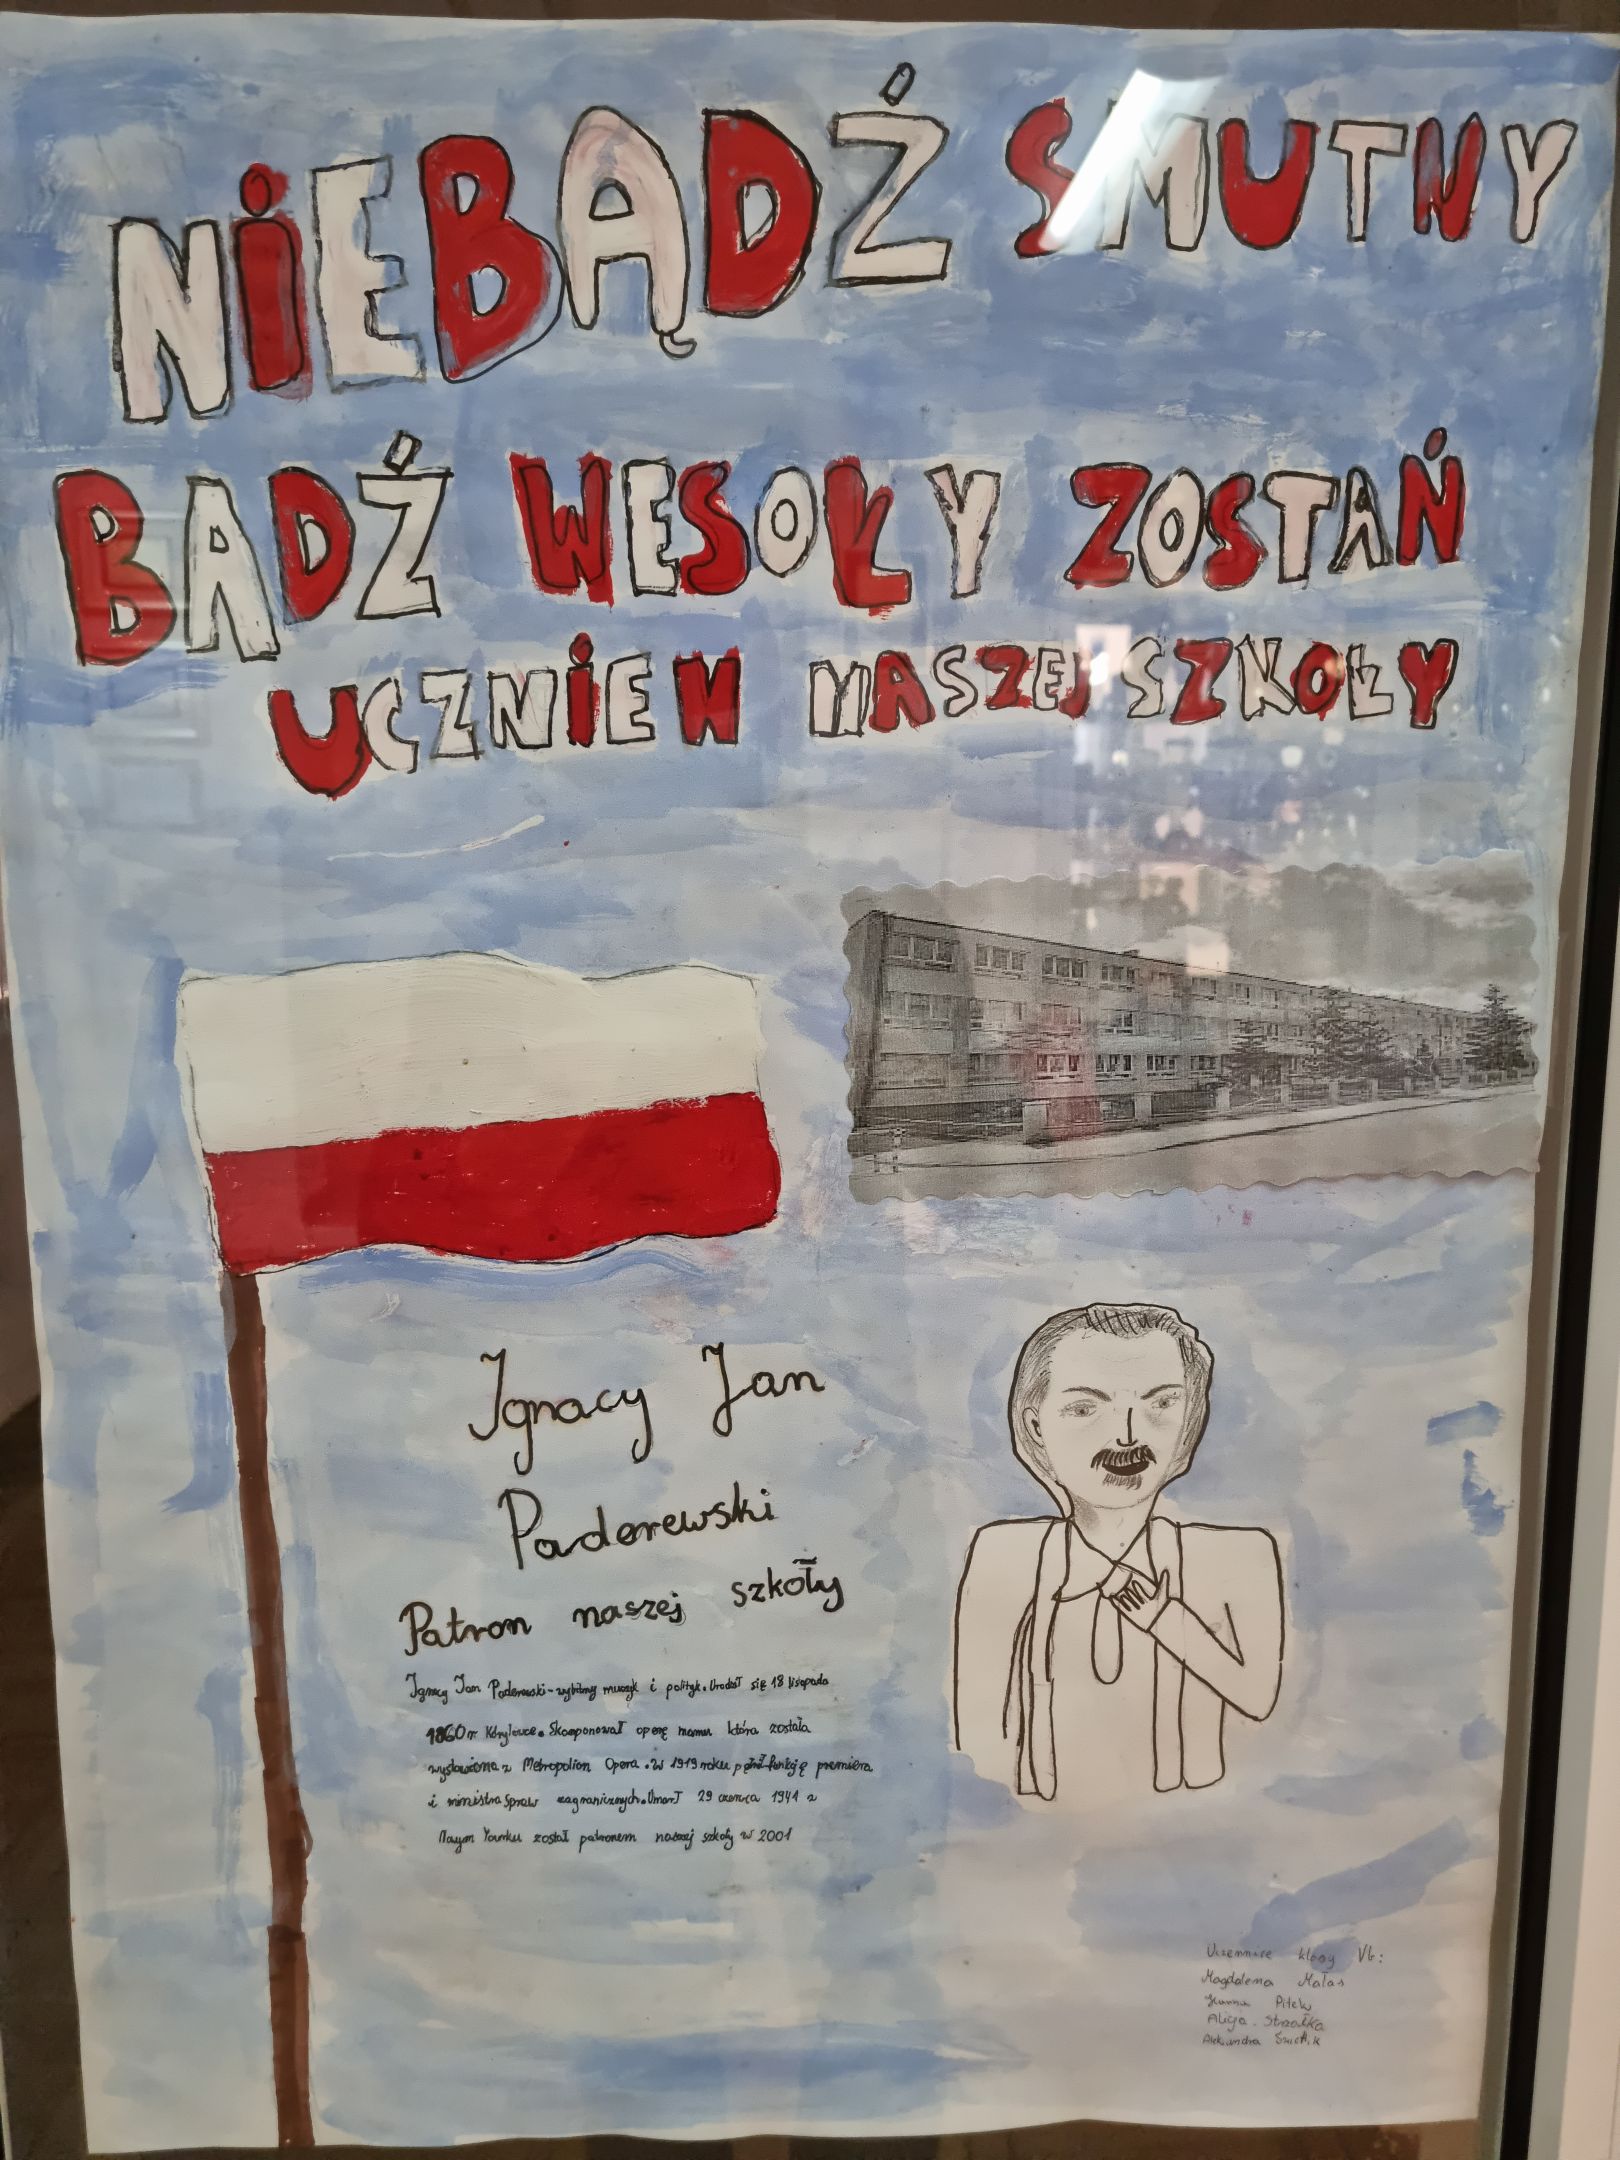 NiE BĄDŹ SMUTNY
BĄDŹ WESOŁY ZOSTAŃ
UCZNiEM NASZEJ SZKOŁY
Ignacy Jan
Paderewski
Patron naszej szkoły
Ignacy Jan Paderewski - wybitny muzyk i polityk. Urodził się 18 listopada
1860 r. Skomponował operę która została
wystawiona z Metropolion Opera. W 1919 roku premiera
i ministra spraw zagranicznych. Umarł 29 czerwca 1941 z
został patronem naszej szkoły w 2001
Uczennice klasy Vb:
Magdalena Małas
Hanna Pitek
Alicja Strzałka
Aleksandra